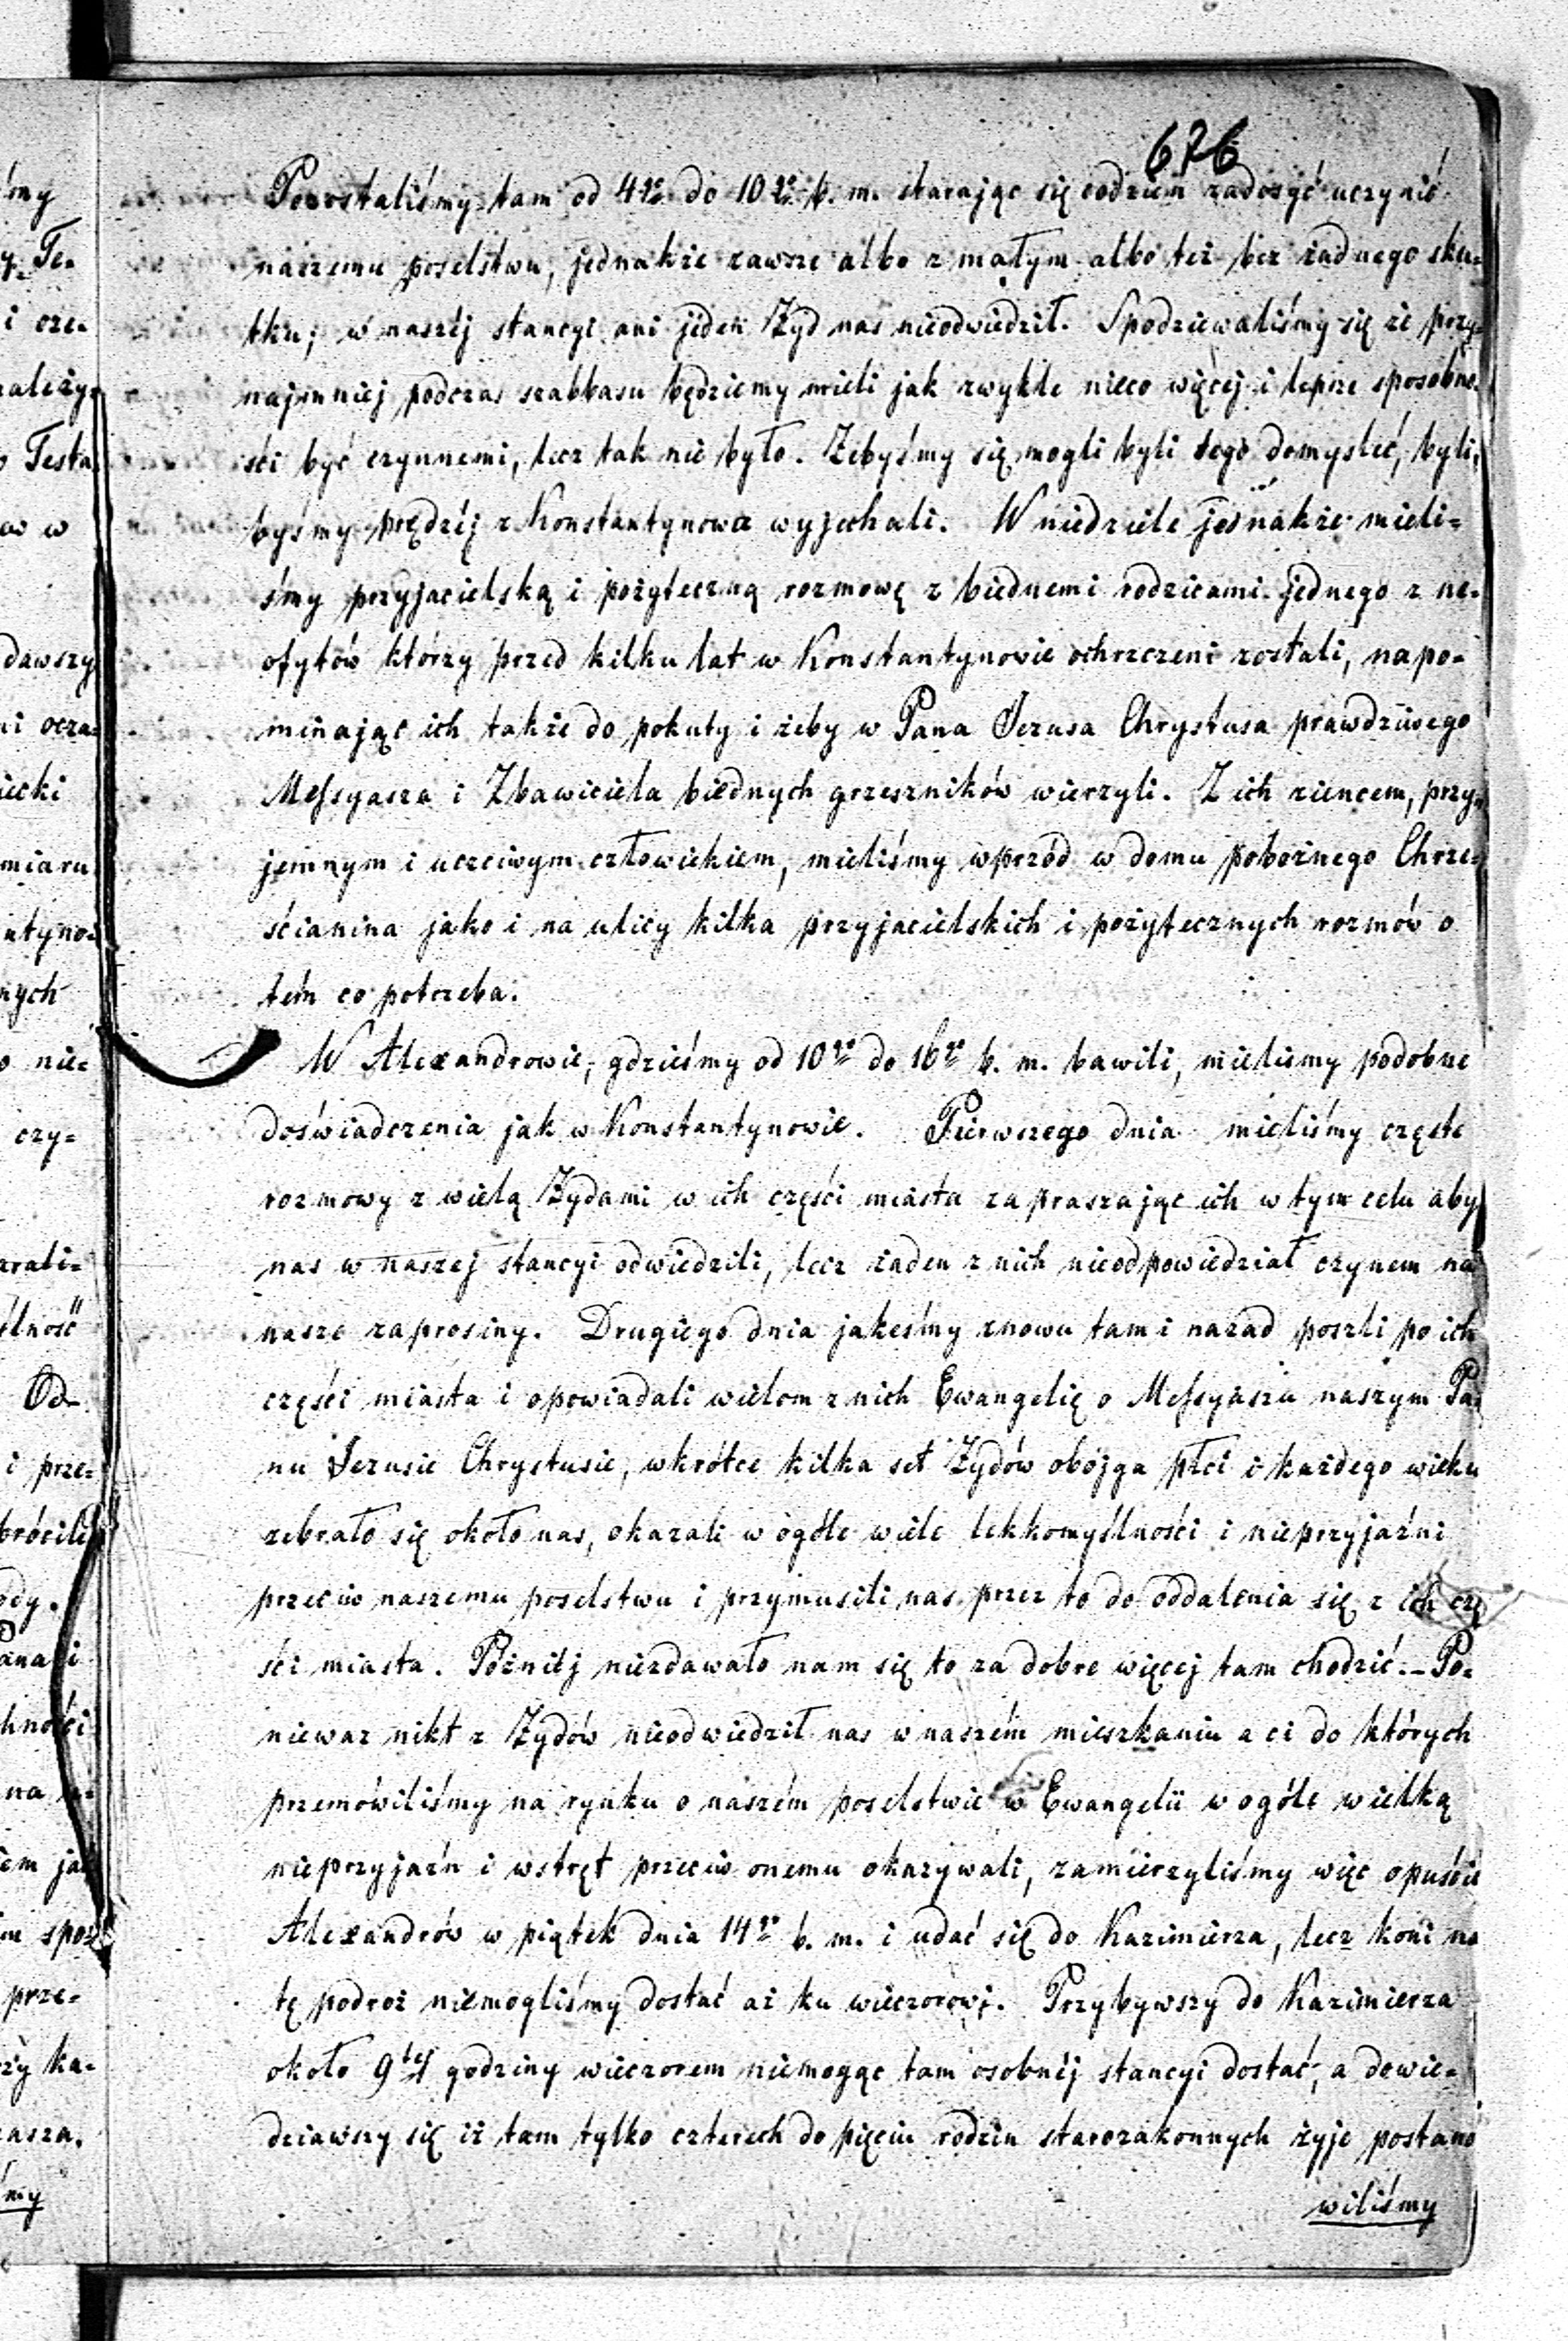 676
Pozostaliśmy tam od 4go do 10go b. m. starając się codzień zadosyć uczynić
naszemu poselstwu, jednakże zawsze albo z małym albo też bez żadnego sku-
tku; w naszéj stancyi ani jeden Żyd nas nieodwiedził. Spodziewaliśmy się że przy-
najmniej podczas szabbasu będziemy mieli jak zwykle nieco więcej i lepsze sposobno-
ści być czynnemi, lecz tak nie było. Żebyśmy się mogli byli tego domysleć, byli-
byśmy prędzéj z Konstantynowa wyjechali. W niedziele jednakże mieli=
śmy przyjacielską i pożyteczną rozmowę z biednemi rodzicami jednego z ne-
ofytów którzy przed kilku lat w Konstantynowie ochrzczeni zostali, napo-
minając ich także do pokuty i żeby w Pana Jezusa Chrystusa prawdziwego
Messyasza i Zbawiciela biednych grzeszników wierzyli. Z ich zięncem, przy-
jemnym i uczciwym człowiekiem, mieliśmy wprzód w domu pobożnego Chrze-
ścianina jako i na ulicy kilka przyjacielskich i pożytecznych rozmów o
tém co potrzeba.
W Alexandrowie, gdzieśmy od 10go do 16go b. m. bawili, mielismy podobne
doświadczenia jak w Konstantynowie. Pierwszego dnia mieliśmy częste
rozmowy z wielą Żydami w ich części miasta zapraszając ich w tym celu aby
nas w naszej stancyi odwiedzili, lecz żaden z nich nieodpowiedział czynem na
nasze zaprosiny. Drugiego dnia jakeśmy znowu tam i nazad poszli po ich
części miasta i opowiadali wielom z nich Ewangelię o Messyaszu naszym Pa-
nu Jezusie Chrystusie, wkrótce kilka set Żydów obojga płci i każdego wieku
zebrało się około nas, okazali w ogóle wiele lekkomyślności i nieprzyjaźni
przeciw naszemu poselstwu i przymusili nas przez to do oddalenia się z ich czę
ści miasta. Póżniéj niezdawało nam się to za dobre więcej tam chodzić. – Po-
niewaz nikt z Żydów nieodwiedził nas w naszém mieszkaniu a ci do których
przemówiliśmy na rynku o naszém poselstwie w Ewangelii w ogóle wielką
nieprzyjaźń i wstręt przeciw onemu okazywali, zamierzyliśmy więc opuścić
Alexandrów w piątek dnia 14go b. m. i udać się do Kazimierza, lecz koni na
tę podroż niemogliśmy dostać aż ku wieczorowi. Przybywszy do Kazimierza
około 9téj godziny wieczorem niemogąc tam osobnéj stancyi dostać, a dowie-
dziawszy się iż tam tylko czterech do pięciu rodzin starozakonnych żyje postano
wiliśmy